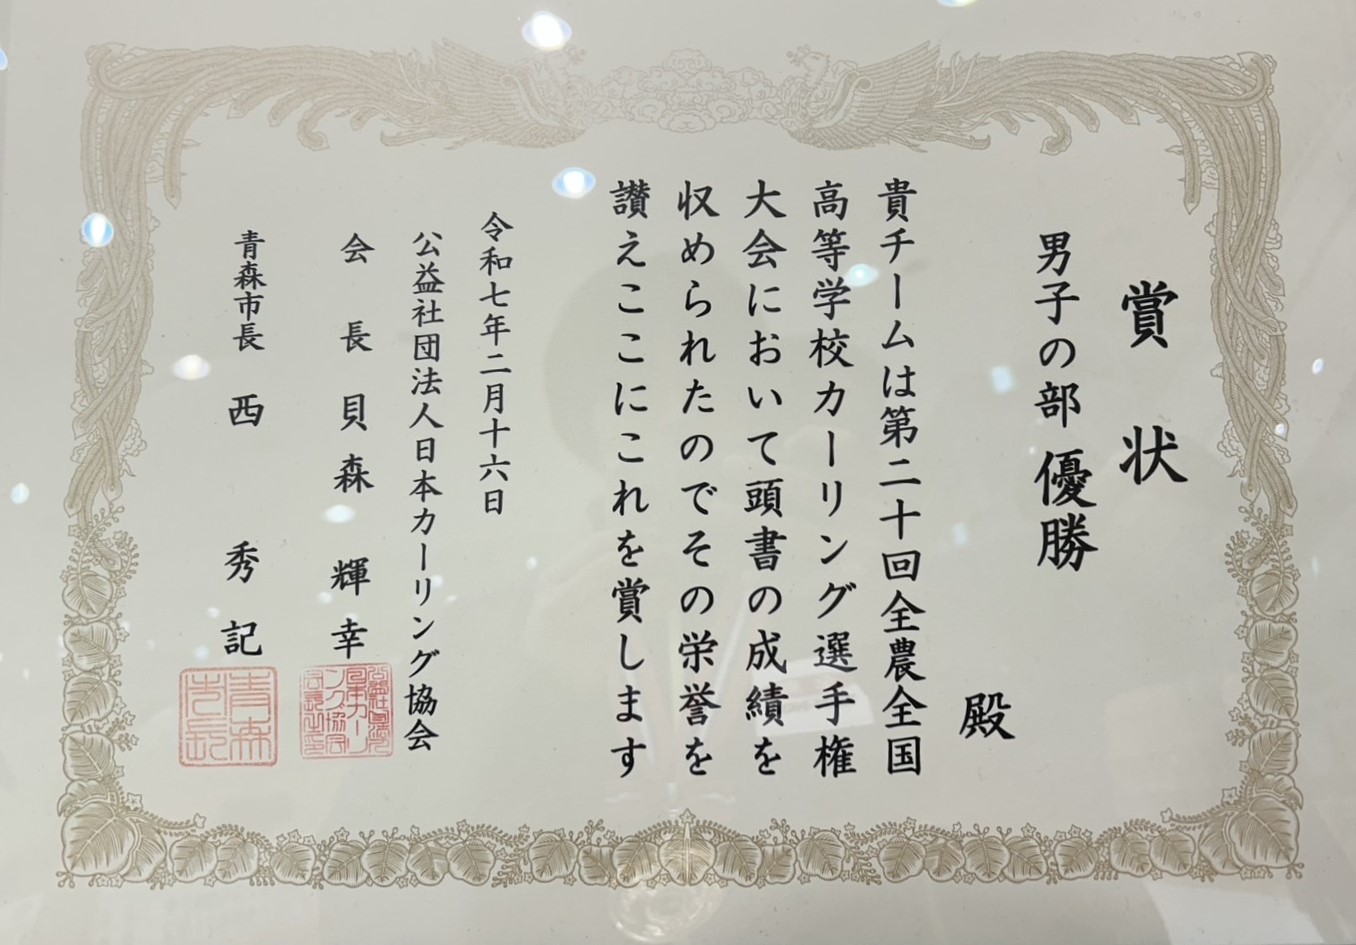 賞状
男子の部 優勝
殿
貴チームは第二十回全農全国
高等学校カーリング選手権
大会において頭書の成績を
収められたのでその栄誉を
讃えここにこれを賞します
令和七年二月十六日
公益社団法人日本カーリング協会
会長 貝森輝幸
青森市長 西秀記
青森市長